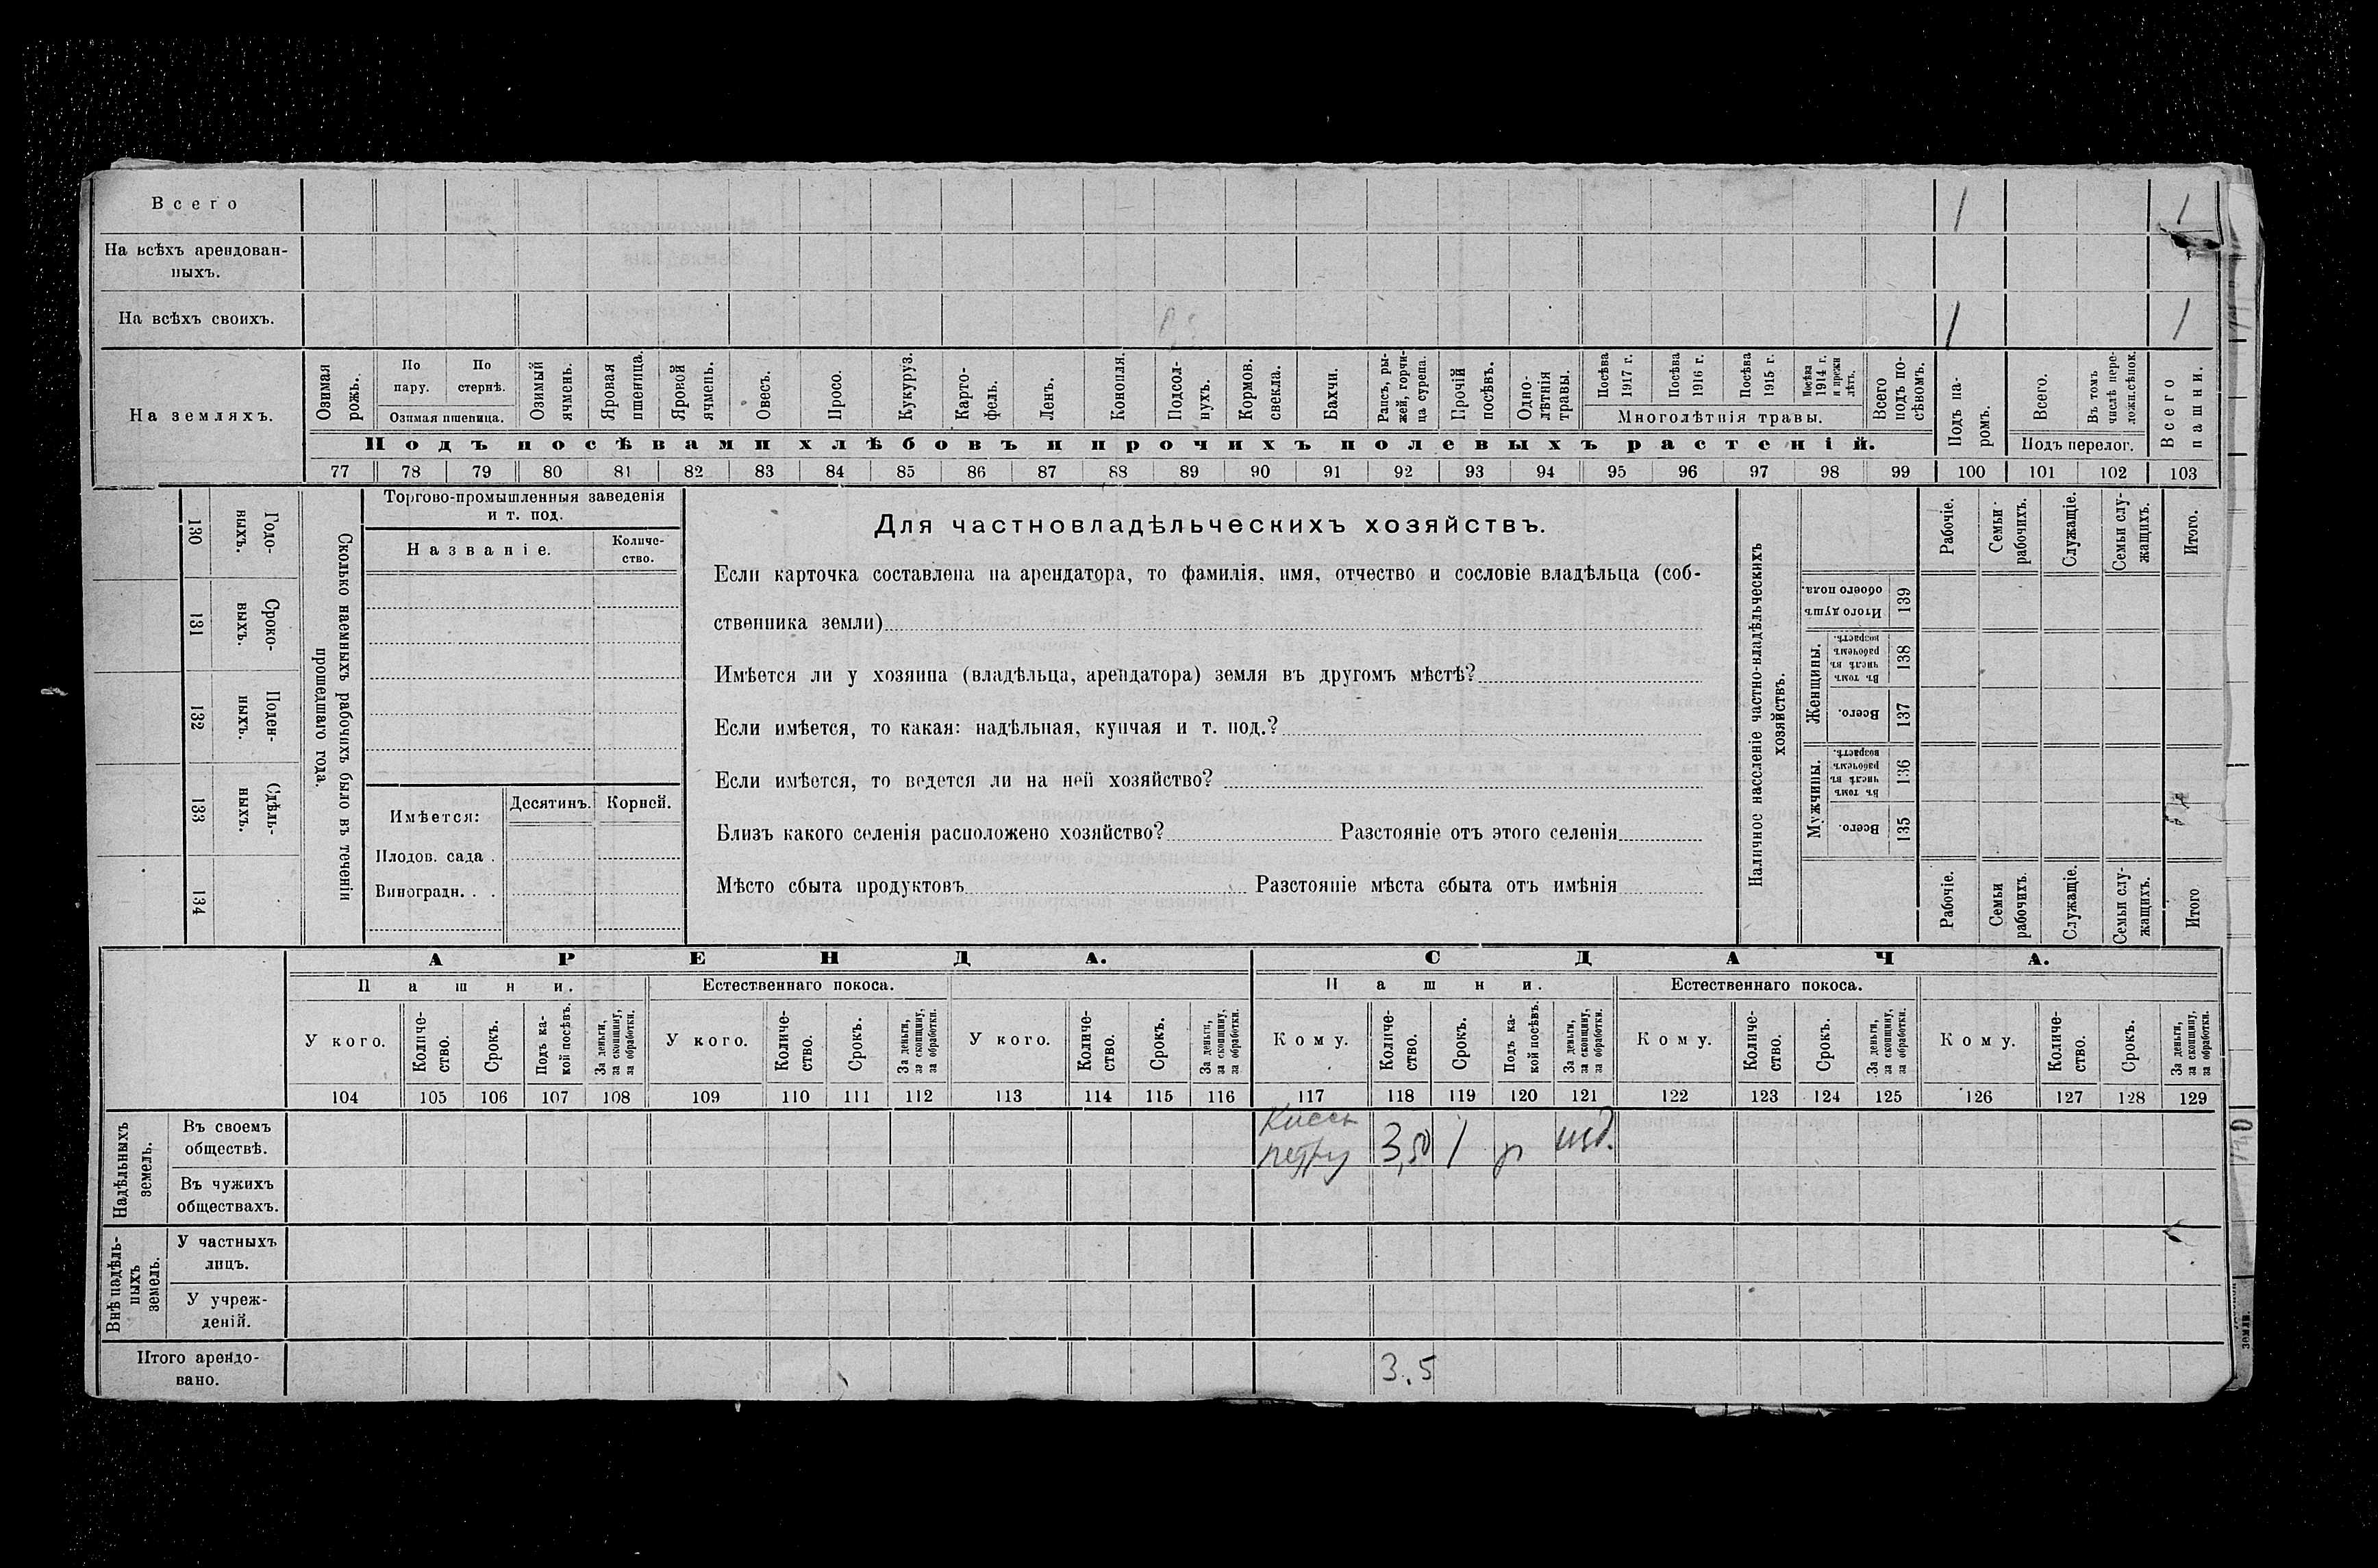 Всего 1 1
На всѣхъ арендован-
ныхъ.
На всѣхъ своихъ. 1 1
На земляхъ.
Озимая рожь.
По пару.
По стернѣ.
Озимая пшеница.
Озимый ячмень.
Яровая пшеница.
Яровой ячмень.
Овесъ.
Просо.
Кукуруз.
Карто-
фель.
Ленъ.
Конопля.
Подсол-
нухъ.
Кормов. свекла.
Бахчи.
Рапсъ, ры-
жей, горчи-
ца сурепа.
Прочій посѣвъ.
Одно-
лѣтнія травы.
Посѣва 1917 г.
Посѣва 1916 г.
Посѣва 1915 г.
Посѣва 1914 г. и прежн лѣтъ.
Многолѣтнія травы.
Всего подъ по-
сѣвомъ.
Подъ па-
ромъ.
Всего.
Въ томъ числѣ пере-
ложн.сѣнок.
Подъ перелог.
Всего пашни.
Подъ посѣвами хлѣбовъ и прочихъ полевыхъ растеній.
77 78 79 80 81 82 83 84 85 86 87 88 89 90 91 92 93 94 95 96 97 98 99 100 101 102 103
Сколько наемныхъ рабочихъ было въ теченіи
прошедшаго года.
Годо-
выхъ.
130
Сроко-
выхъ.
131
Поден-
ныхъ.
132
Сдѣль-
ныхъ.
133
134
Торгово-промышленныя заведенія
и т. под.
Названіе.
Количе-
ство.
Имѣется:
Десятинъ.
Корней.
Плодов. сада .
Виноградн. . .
Для частновладѣльческихъ хозяйствъ.
Если карточка составлена на арендатора, то фамилія, имя, отчество и сословіе владѣльца (соб-
ственника земли)
Имѣется ли у хозяина (владѣльца, арендатора) земля въ другомъ мѣстѣ?
Если имѣется, то какая: надѣльная, купчая и т. под.?
Если имѣется, то ведется ли на ней хозяйство?
Близъ какого селенія расположено хозяйство? Разстояніе отъ этого селенія
Мѣсто сбыта продуктовъ Разстояніе мѣста сбыта отъ имѣнія
Наличное населеніе частно-владѣльческихъ
хозяйствъ.
Рабочіе.
Семьи рабочихъ.
Служащіе.
Семьи слу-
жащихъ.
Итого.
Итого душъ обоего пола.
139
Женщины.
Въ томъ числѣ въ рабочемъ возрастѣ.
138
Всего.
137
Мужчины.
Въ томъ числѣ въ рабочемъ возрастѣ.
136
Всего.
135
Рабочіе.
Семьи рабочихъ.
Служащіе.
Семьи слу-
жащихъ.
Итого
АРЕНДА. СДАЧА.
Пашни. Естественнаго покоса. Пашни. Естественнаго покоса.
У кого.
Количе-
ство.
Срокъ.
Подъ ка-
кой посѣвъ.
За деньги, за скопщину, за обработки.
У кого.
Количе-
ство.
Срокъ.
За деньги, за скопщину, за обработки.
У кого.
Количе-
ство.
Срокъ.
За деньги, за скопщину, за обработки.
Кому.
Количе-
ство.
Срокъ.
Подъ ка-
кой посѣвъ.
За деньги, за скопщину, за обработки.
Кому.
Количе-
ство.
Срокъ.
За деньги, за скопщину, за обработки.
Кому.
Количе-
ство.
Срокъ.
За деньги, за скопщину, за обработки.
104 105 106 107 108 109 110 111 112 113 114 115 116 117 118 119 120 121 122 123 124 125 126 127 128 129
Надѣльныхъ
земель.
Въ своемъ
обществѣ.
3,50 1
Въ чужихъ
обществахъ.
Внѣ надѣль-
ныхъ
земель.
У частныхъ
лицъ.
У учреж-
деній.
Итого арендо-
вано.
3.5